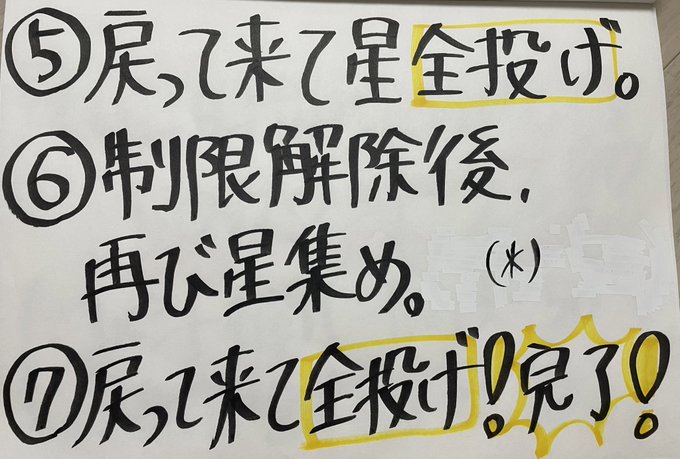 ⑤戻って来て星全投げ。
⑥制限解除後、
再び星集め。(※)
⑦戻って来て全投げ!完了!